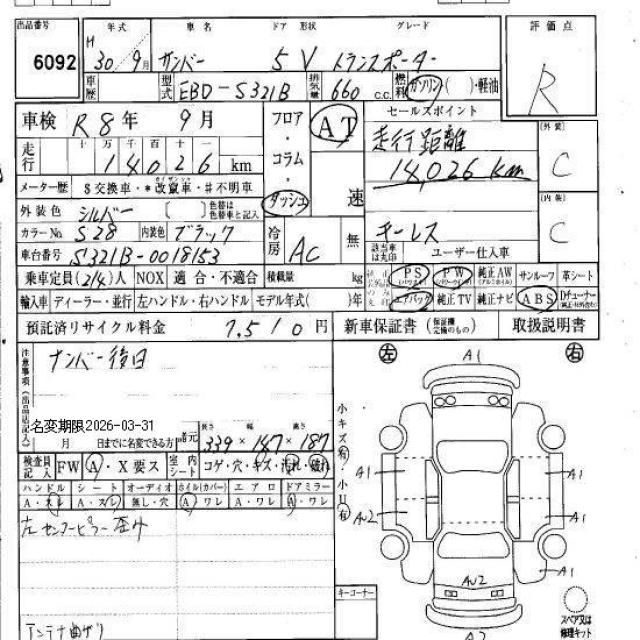 出品番号 年式 車名 ドア 形状 グレード 評価点
6092 H 30/9月 サンバー 5 V トランスポーター R
車歴 型式 EBD-S321B 排気量 660 c.c. 燃料 ガソリン( )・軽油
車検 R8年 9月 フロア・コラム・ダッシュ AT 速 セールスポイント
走行 十万千百十一 14026 km
走行距離 14,026 km
(外装) C
メーター歴 $交換車・*改竄車・#不明車
外装色 シルバー [ ] 色替は色替車と記入
(内装) C
カラーNo. S28 内装色 ブラック 冷房 AC 無 キーレス
車台番号 S321B-0018153 該当車は丸印 ユーザー仕入車
乗車定員(2/4)人 NOX 適合・不適合 積載量 kg PS PW 純正AW サンルーフ 革シート
輸入車 ディーラー・並行 左ハンドル・右ハンドル モデル年式( )年 エアバック 純正TV 純正ナビ ABS Dチューナー
預託済リサイクル料金 7,510円 新車保証書 (保証欄完備のもの) 取扱説明書
注意事項(出品店記入) ナンバー後日
左 A1 右
名変期限2026-03-31
月 日までに名変できる方 諸元 長さ 339 幅 147 高さ 187
小キズ有・小U有
検査員記入 FW A・X要ス 室内シート コゲ・穴・キズ・汚れ・破れ
ハンドル シート オーディオ ホイル(カバー) エアロ ドアミラー
A・スレ A・スレ 無し・穴 A・ワレ A・ワレ A・ワレ
A1 A1
AU2 A1
左センターピラー歪み
A1
AU2
キーコーナー
スペア又は修理キット
アンテナ曲がり
A2